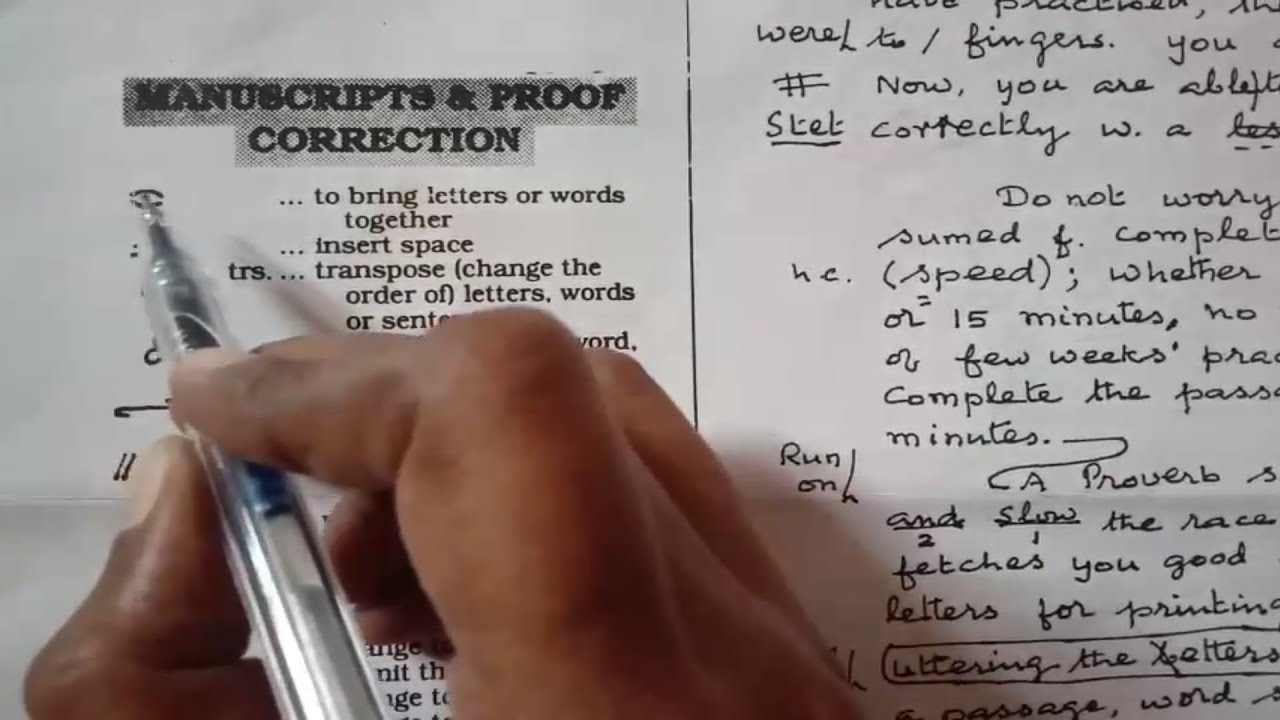 MANUSCRIPTS & PROOF
CORRECTION
... to bring letters or words
together
... insert space
trs. ... transpose (change the
order of) letters, words
or sente
word,
ange to
nit th
nge to
have practised, th
were/ to / fingers. you
# Now, you are able/t
Stet correctly w. a tes
Do not worry
sumed f. complet
h.c. (speed); whether
or 15 minutes, no
of few weeks' prac
Complete the passa
minutes.
Run
on/
A Proverb s
and slow the race
2 1
fetches you good
letters for printing
uttering the letters
a passage, word s